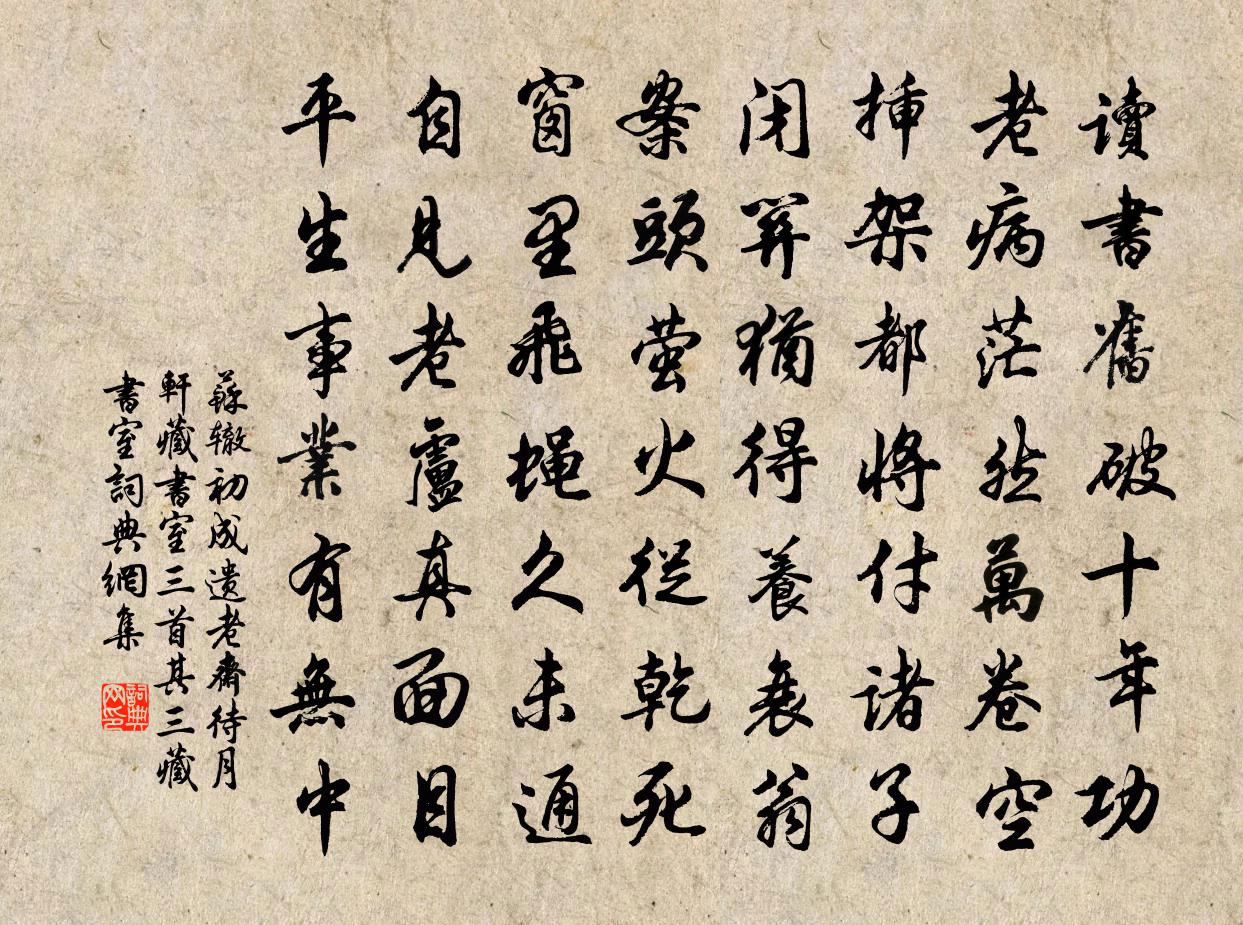 讀書舊破十年功
老病茫然萬卷空
插架都將付諸子
閉關猶得養衰翁
案頭螢火從乾死
窗里飛蝇久未通
自見老盧真面目
平生事業有無中
蘇辙初成遺老齋待月
軒藏書室三首其三藏
書室詞典網集
詞典
网印